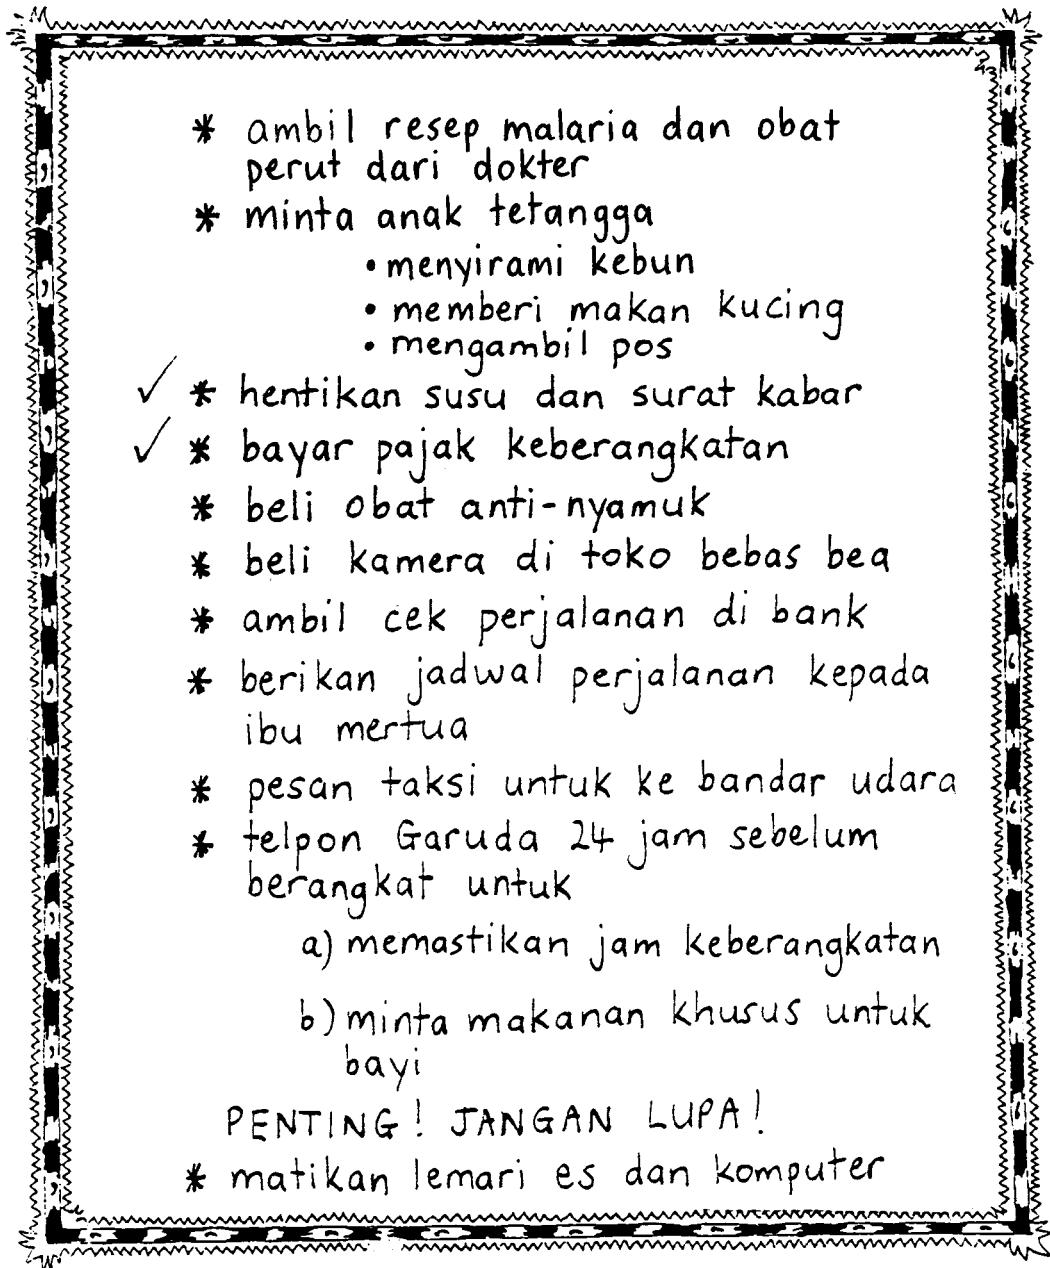 * ambil resep malaria dan obat
perut dari dokter
* minta anak tetangga
• menyirami kebun
• memberi makan kucing
• mengambil pos
✓ * hentikan susu dan surat kabar
✓ * bayar pajak keberangkatan
* beli obat anti-nyamuk
* beli kamera di toko bebas bea
* ambil cek perjalanan di bank
* berikan jadwal perjalanan kepada
ibu mertua
* pesan taksi untuk ke bandar udara
* telpon Garuda 24 jam sebelum
berangkat untuk
a) memastikan jam keberangkatan
b) minta makanan khusus untuk
bayi
PENTING! JANGAN LUPA!
* matikan lemari es dan komputer